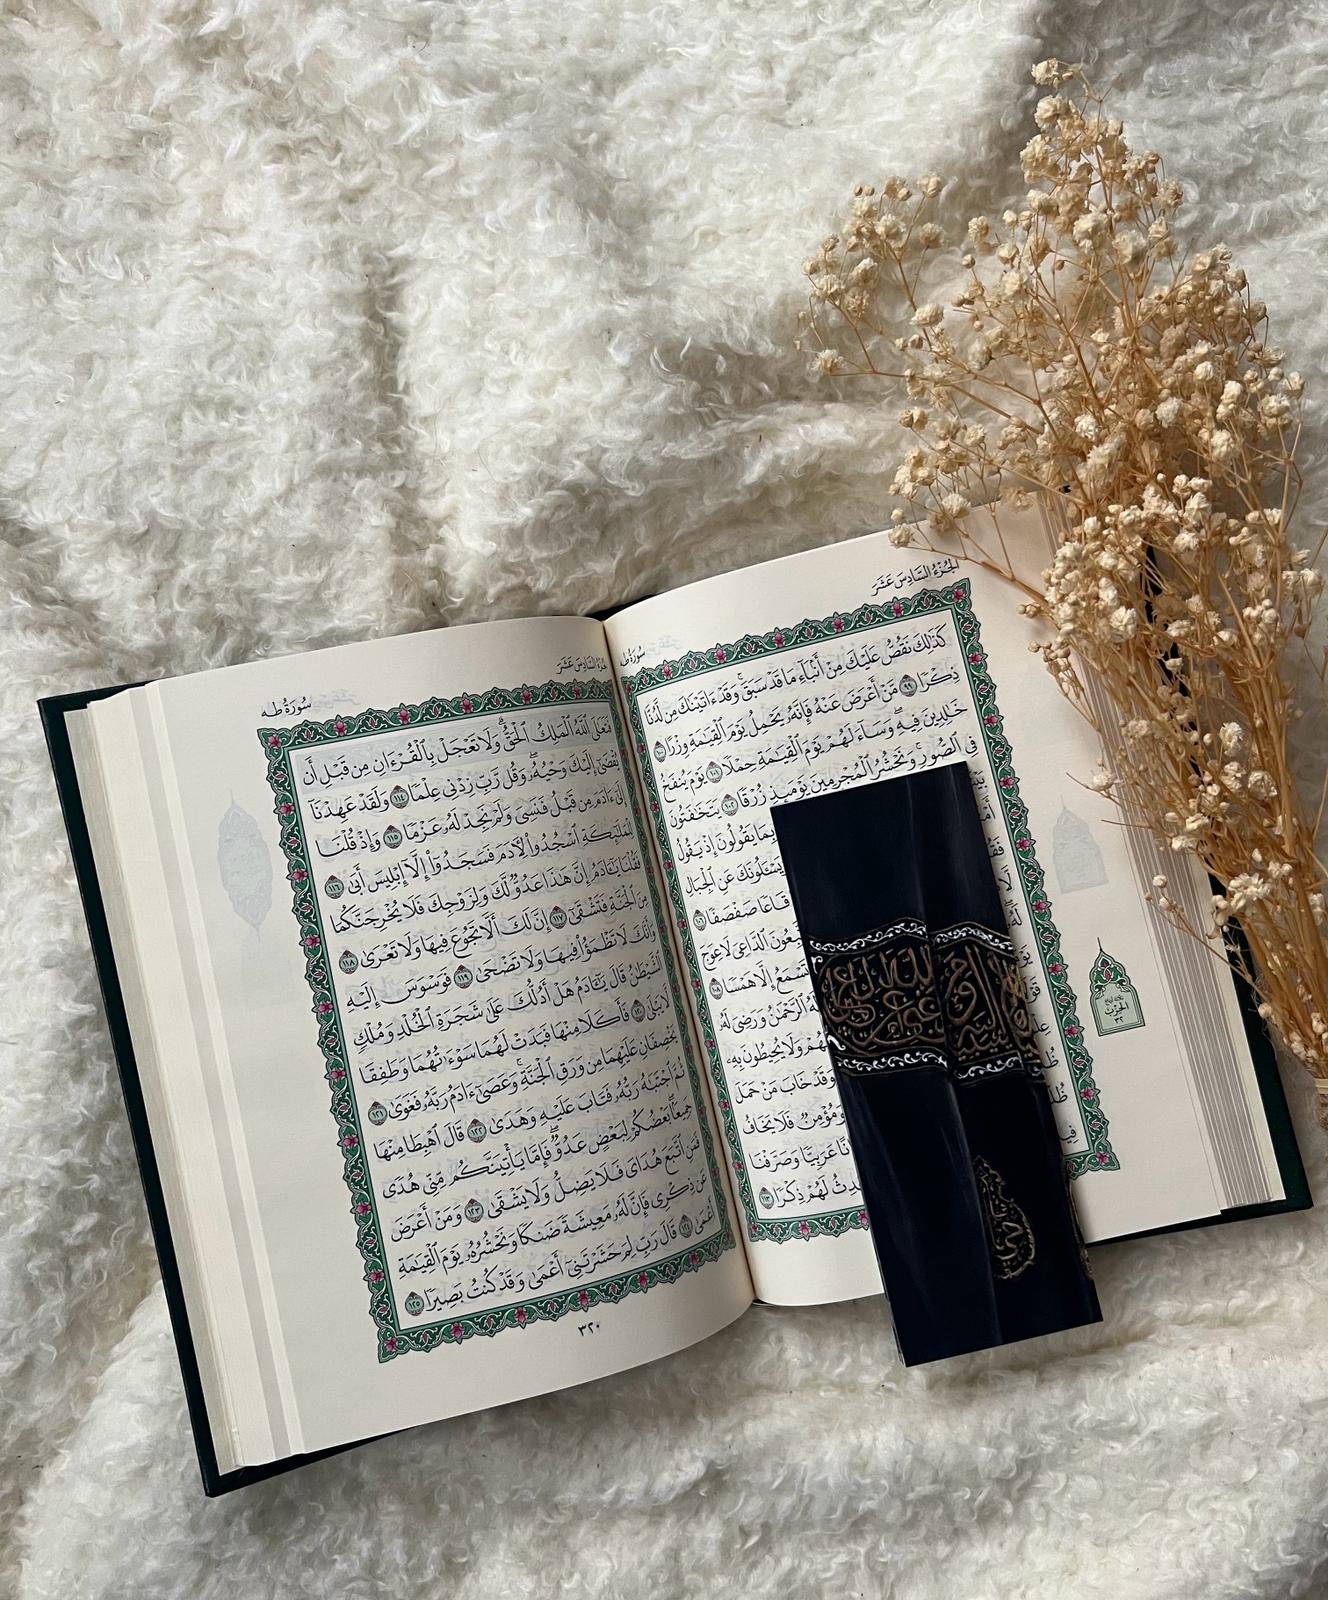 الجُزْءُ السَّادِسَ عَشَرَ
سُورَةُ طه
كَذَٰلِكَ نَقُصُّ عَلَيْكَ مِنْ أَنۢبَآءِ مَا قَدْ سَبَقَ ۚ وَقَدْ ءَاتَيْنَٰكَ مِن لَّدُنَّا
ذِكْرًا ٩٩ مَّنْ أَعْرَضَ عَنْهُ فَإِنَّهُۥ يَحْمِلُ يَوْمَ ٱلْقِيَٰمَةِ وِزْرًا ١٠٠
خَٰلِدِينَ فِيهِ ۖ وَسَآءَ لَهُمْ يَوْمَ ٱلْقِيَٰمَةِ حِمْلًا ١٠١ يَوْمَ يُنفَخُ
فِى ٱلصُّورِ ۚ وَنَحْشُرُ ٱلْمُجْرِمِينَ يَوْمَئِذٍ زُرْقًا ١٠٢ يَتَخَٰفَتُونَ
بِمَا يَقُولُونَ إِذْ يَقُولُ
يَسْـَٔلُونَكَ عَنِ ٱلْجِبَالِ
قَاعًا صَفْصَفًا ١٠٦
ٱلدَّاعِىَ لَا عِوَجَ
لَهُۥ تَسْمَعُ إِلَّا هَمْسًا ١٠٨
لَهُ ٱلرَّحْمَٰنُ وَرَضِىَ لَهُۥ
وَلَا يُحِيطُونَ بِهِۦ
وَقَدْ خَابَ مَنْ حَمَلَ
مُؤْمِنٌ فَلَا يَخَافُ
عَرَبِيًّا وَصَرَّفْنَا
لَهُمْ ذِكْرًا ١١٣
الحِزْب
٣٢
جُزْءُ السَّادِسَ عَشَرَ
سُورَةُ طه
فَتَعَٰلَى ٱللَّهُ ٱلْمَلِكُ ٱلْحَقُّ ۗ وَلَا تَعْجَلْ بِٱلْقُرْءَانِ مِن قَبْلِ أَن
يُقْضَىٰٓ إِلَيْكَ وَحْيُهُۥ ۖ وَقُل رَّبِّ زِدْنِى عِلْمًا ١١٤ وَلَقَدْ عَهِدْنَآ
إِلَىٰٓ ءَادَمَ مِن قَبْلُ فَنَسِىَ وَلَمْ نَجِدْ لَهُۥ عَزْمًا ١١٥ وَإِذْ قُلْنَا
لِلْمَلَٰٓئِكَةِ ٱسْجُدُوا۟ لِءَادَمَ فَسَجَدُوٓا۟ إِلَّآ إِبْلِيسَ أَبَىٰ ١١٦
فَقُلْنَا يَٰٓـَٔادَمُ إِنَّ هَٰذَا عَدُوٌّ لَّكَ وَلِزَوْجِكَ فَلَا يُخْرِجَنَّكُمَا
مِنَ ٱلْجَنَّةِ فَتَشْقَىٰٓ ١١٧ إِنَّ لَكَ أَلَّا تَجُوعَ فِيهَا وَلَا تَعْرَىٰ ١١٨
وَأَنَّكَ لَا تَظْمَؤُا۟ فِيهَا وَلَا تَضْحَىٰ ١١٩ فَوَسْوَسَ إِلَيْهِ
ٱلشَّيْطَٰنُ قَالَ يَٰٓـَٔادَمُ هَلْ أَدُلُّكَ عَلَىٰ شَجَرَةِ ٱلْخُلْدِ وَمُلْكٍ
لَّا يَبْلَىٰ ١٢٠ فَأَكَلَا مِنْهَا فَبَدَتْ لَهُمَا سَوْءَٰتُهُمَا وَطَفِقَا
يَخْصِفَانِ عَلَيْهِمَا مِن وَرَقِ ٱلْجَنَّةِ ۚ وَعَصَىٰٓ ءَادَمُ رَبَّهُۥ فَغَوَىٰ ١٢١
ثُمَّ ٱجْتَبَٰهُ رَبُّهُۥ فَتَابَ عَلَيْهِ وَهَدَىٰ ١٢٢ قَالَ ٱهْبِطَا مِنْهَا
جَمِيعًۢا ۖ بَعْضُكُمْ لِبَعْضٍ عَدُوٌّ ۖ فَإِمَّا يَأْتِيَنَّكُم مِّنِّى هُدًى
فَمَنِ ٱتَّبَعَ هُدَاىَ فَلَا يَضِلُّ وَلَا يَشْقَىٰ ١٢٣ وَمَنْ أَعْرَضَ
عَن ذِكْرِى فَإِنَّ لَهُۥ مَعِيشَةً ضَنكًا وَنَحْشُرُهُۥ يَوْمَ ٱلْقِيَٰمَةِ
أَعْمَىٰ ١٢٤ قَالَ رَبِّ لِمَ حَشَرْتَنِىٓ أَعْمَىٰ وَقَدْ كُنتُ بَصِيرًا ١٢٥
٣٢٠